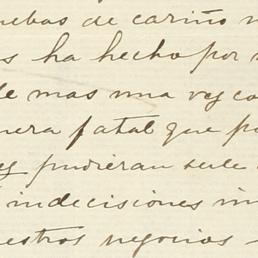 uebas de cariño n
s ha hecho por
de mas una vez co
nera fatal que po
ey pudieran serle
indecisiones in
estros negocios